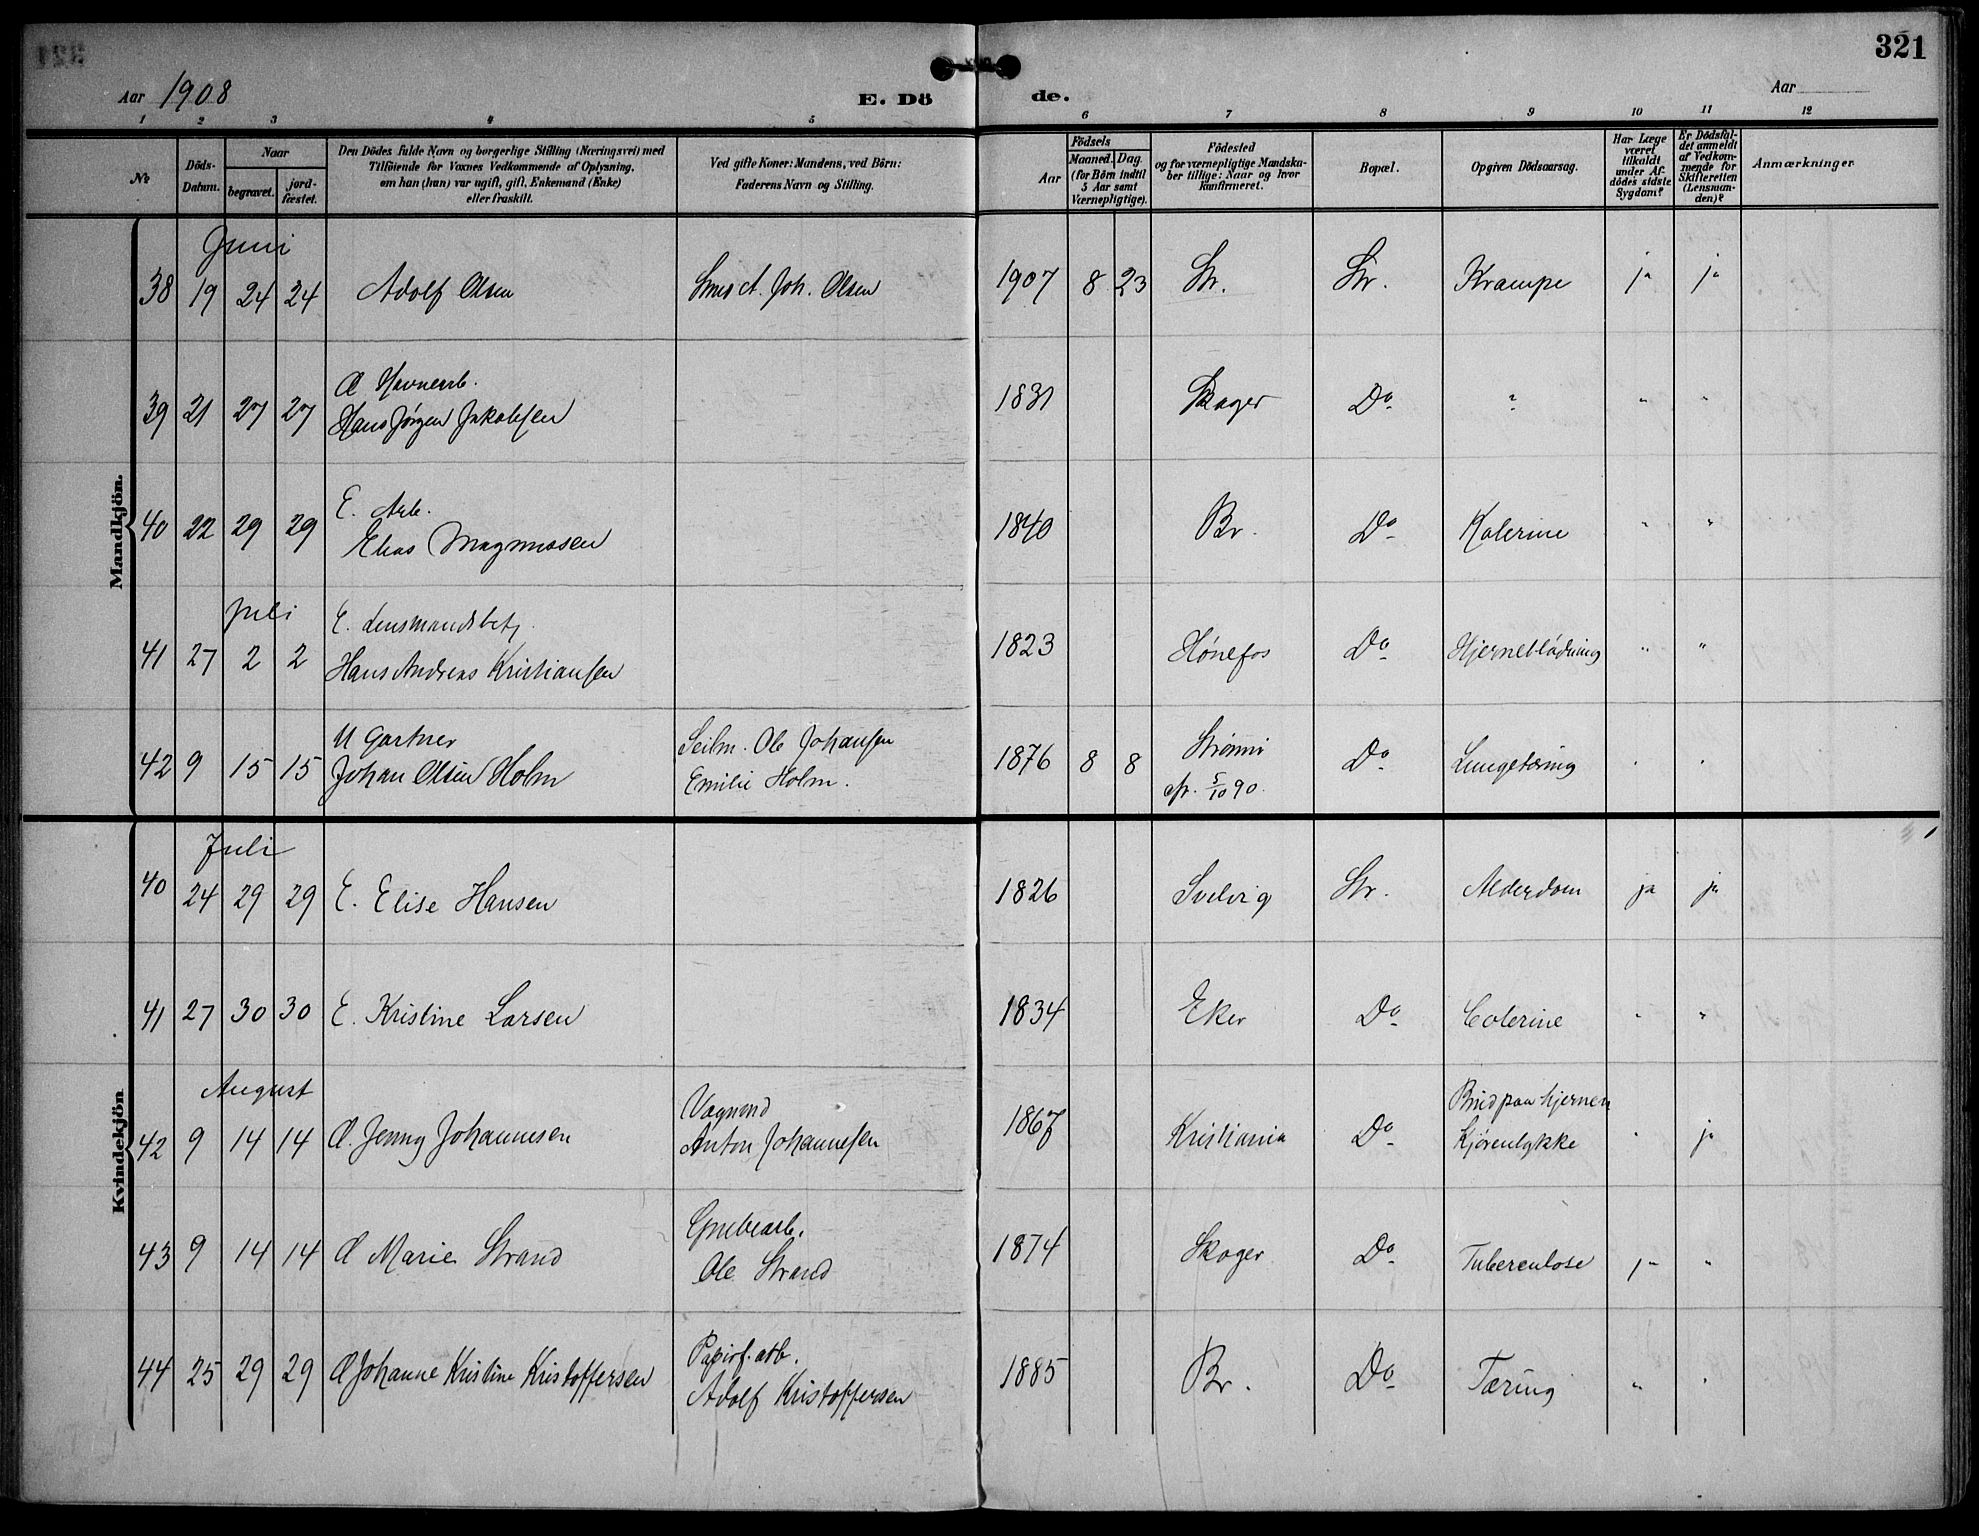 321
Aar 1908
E. Dö
de.
Aar
1 2 3 4 5 6 7 8 9 10 11 12
№
Döds-Datum.
Naar
begravet.
jord-fæstet.
Den Dödes fulde Navn og borgerlige Stilling (Næringsvei) med
Tilföiende for Voxnes Vedkommende af Oplysning,
om han (hun) var ugift, gift, Enkemand (Enke)
eller fraskilt.
Ved gifte Koner: Mandens, ved Börn:
Faderens Navn og Stilling.
Aar
Födsels
Maaned. Dag.
(for Börn indtil
5 Aar samt
Værnepligtige).
Födested
og for værnepligtige Mandska-
ber tillige: Naar og hvor
konfirmeret.
Bopæl.
Opgiven Dödsaarsag.
Har Læge
været
tilkaldt
under Af-
dödes sidste
Sygdom?
Er Dödsfal-
det anmeldt
af Vedkom-
mende for
Skifteretten
(Lensman-
den)?
Anmærkninger
Mandkjön.
Juni
38 19 24 24 Adolf Olsen Joh. Olsen 1907 8 23 Str. Str. Krampe ja ja
Æ Havnearb.
39 21 27 27 Hans Jørgen Jakobsen 1831 Skoger Do ? " "
E. Arb.
40 22 29 29 Elias Magnussen 1840 Br. Do Kolerine " "
Juli
E. Lensmandsbetj.
41 27 2 2 Hans Andreas Kristiansen 1823 Hønefos Do Hjerneblødning " "
U Gartner
Seilm. Ole Johansen
42 9 15 15 Johan Olsen Holm Emilie Holm. 1876 8 8 Strømsø Do Lungetæring " "
5/10 90.
Kvindekjön
Juli
40 24 29 29 E. Elise Hansen 1826 Svelvig Str. Alderdom ja ja
41 27 30 30 E. Kristine Larsen 1834 Eker Do Colerine " "
August
Vognmd
Brud paa hjernen
42 9 14 14 Æ. Jenny Johannesen Anton Johannesen 1867 Kristiania Do Kjøreulykke " ja
Grubearb.
43 9 14 14 Æ Marie Strand Ole Strand 1874 Skoger Do Tuberculose ja "
Papirf. arb.
44 25 29 29 Æ Johanne Kristine Kristoffersen Adolf Kristoffersen 1885 Br. Do Tæring " "